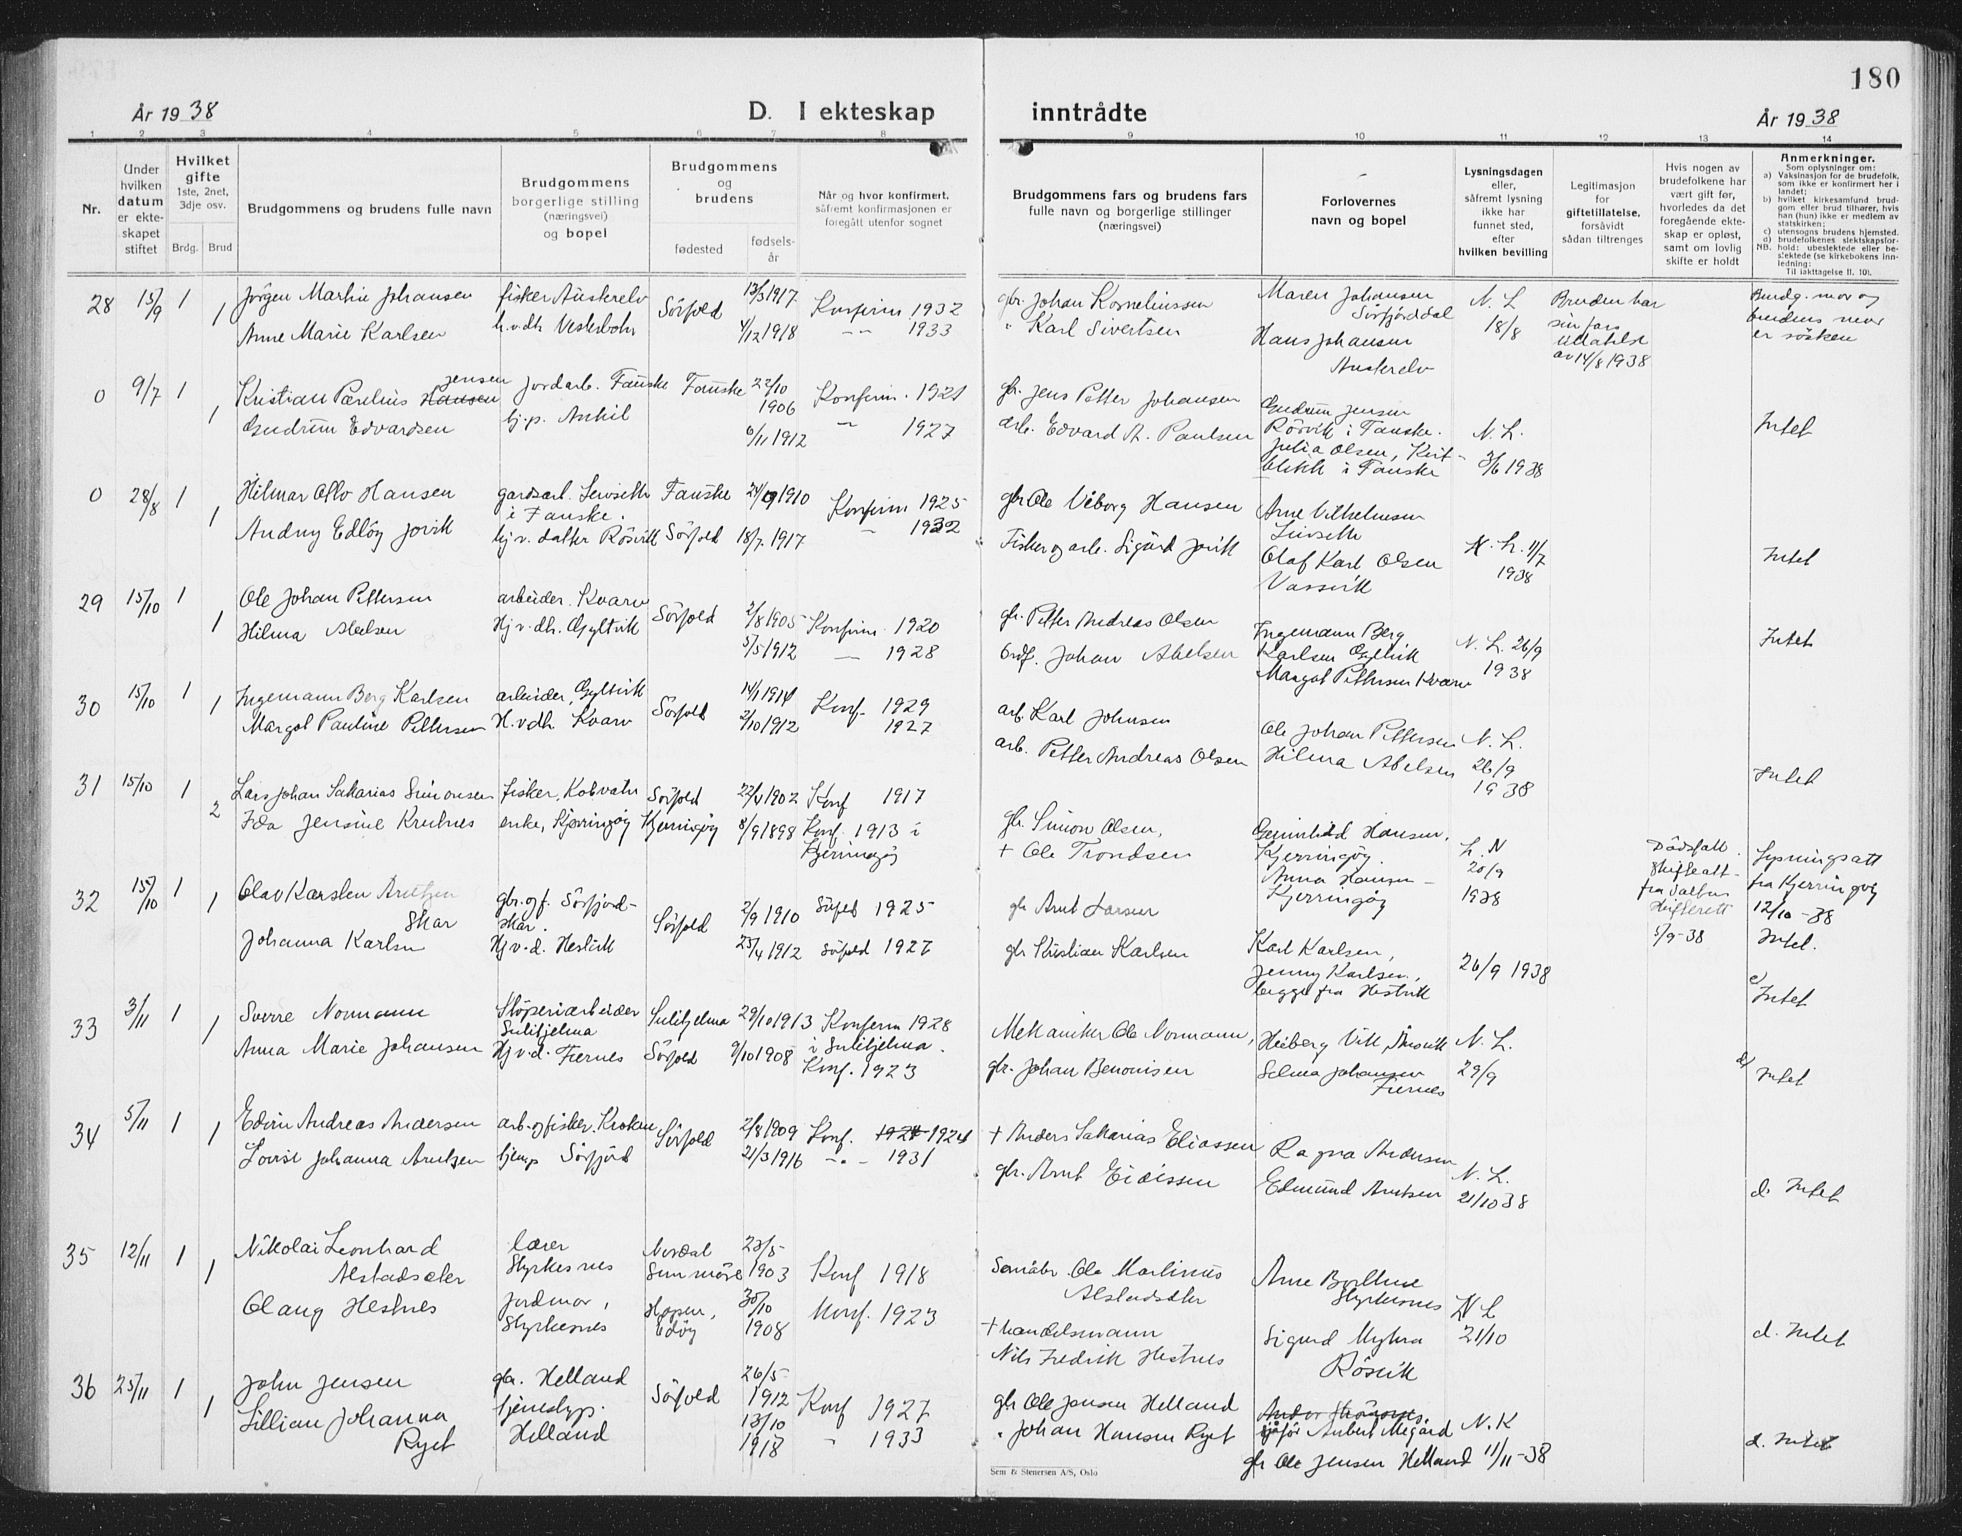 180
År 1938
D. I ekteskap
inntrådte
År 1938
1 2 3 4 5 6 7 8 9 10 11 12 13 14
Nr.
Under
hvilken
datum
er ekte-
skapet
stiftet
Hvilket
gifte
1ste, 2net,
3dje osv.
Brdg. Brud
Brudgommens og brudens fulle navn
Brudgommens
borgerlige stilling
(næringsvei)
og bopel
Brudgommens
og
brudens
fødested
fødsels-
år
Når og hvor konfirmert,
såfremt konfirmasjonen er
foregått utenfor sognet
Brudgommens fars og brudens fars
fulle navn og borgerlige stillinger
(næringsvei)
Forlovernes
navn og bopel
Lysningsdagen
eller,
såfremt lysning
ikke har
funnet sted,
efter
hvilken bevilling
Legitimasjon
for
giftetillatelse,
forsåvidt
sådan tiltrenges
Hvis nogen av
brudefolkene har
vært gift før,
hvorledes da det
foregående ekte-
skap er opløst,
samt om lovlig
skifte er holdt
Anmerkninger.
Som oplysninger om:
a) Vaksinasjon for de brudefolk,
som ikke er konfirmert her i
landet;
b) hvilket kirkesamfund brud-
gom eller brud tilhører, hvis
han (hun) ikke er medlem av
statskirken;
c) utensogns brudens hjemsted.
d) brudefolkenes slektskapsfor-
NB. hold: ubeslektede eller be-
slektede (se kirkebokens inn-
ledning:
Til iakttagelse II. 10).
28 15/9 1 Jørgen Martin Johansen fisker Austerelv Sörfold 13/3 1917 Konfirm 1932 gbr. Johan Korneliussen Maren Johansen Sörfjorddal N. L. 18/8 Bruden har sin fars tillatelse av 14/8 1938 Brudg. mor og brudens mor er søsken
1 Anne Marie Karlsen h.v.dh. Vesterbotn 4/12 1918 -"- 1933 " Karl Sivertsen Hans Johansen Austerelv
0 9/7 1 Kristian Parelius Hansen Jensen Jordarb. Fauske Fauske 22/10 1906 Konfirm. 1921 gbr. Jens Petter Johansen Gudrun Jensen Rösvik i Fauske. N. L. 3/6 1938 Intet
1 Gudrun Edvardsen 6/11 1912 " 1927 arb. Edvard A. Paulsen Julia Olsen, Kvit- blikk i Fauske
0 28/8 1 Hilmar Otto Hansen gardsarb. i Fauske. Fauske 1910 Konfirm 1925 gbr Ole Viborg Hansen Arne Vilhelmsen N. L. 11/7 1938 Intet
1 Andny Edlöy Jovik hj.v. datter Rösvik Sörfold 18/7 1917 " 1932 Fisker og arb. Sigurd Jovik Olaf Karl Olsen Vassvik
29 15/10 1 Ole Johan Pettersen arbeider. Kvarv Sörfold 2/8 1905 Konfirm. 1920 gbr. Petter Andreas Olsen Ingemann Berg Karlsen Gyltvik N. L. 26/9 1938 Intet
1 Hilma Abelsen Hj.v.dh. Gyltvik 5/5 1912 — 1928 Johan Abelsen Margot Pettersen Kvarv
30 15/10 1 Ingemann Berg Karlsen arbeider, Gyltvik Sörfold 14/1 1914 Konf. 1929 arb. Karl Johnsen Ole Johan Pettersen N. L. 26/9 1938 Intet
1 Margot Pauline Pettersen H.v.dh. Kvarv 2/10 1912 1927 arb. Petter Andreas Olsen Hilma Abelsen
31 15/10 1 Lars Johan Sakarias Simonsen fisker, Kobvatn Sörfold 22/1 1902 Konf 1917 gbr. Simon Olsen, Hansen, Kjerringöy. L. N 20/9 1938 Dödsfall. Skifteatt- fra Salten Skifterett 5/9-38 Lysningsatt fra Kjerringöy 12/10-38
2 Ida Jensine enke, Kjerringöy Kjerringöy 8/9 1898 Konf. 1913 i Kjerringöy + Ole Trondsen Anna Hansen — Kjerringöy
32 15/10 1 Olav Karsten Arntzen Skar gbr. og f. Sörfjord- skar. Sörfold 2/9 1910 Sörfold 1925 gbr Arnt Larsen Karl Karlsen, 26/9 1938 Intet.
1 Johanna Karlsen Hj.v.d. Hestvik 23/4 1912 Sörfold 1927 gbr Kristian Karlsen Jenny Karlsen, begge fra Hestvik
33 3/11 1 Sverre Normann Stöperiarbeider Sulitjelma Sulitjelma 29/10 1913 Konfirm 1928 i Sulitjelma. Mekaniker Ole Normann, Heiberg N. L. 29/9 Intet
1 Anna Marie Johansen Hj.v.d. Fjernes Sörfold 9/10 1908 Konf. 1923 gbr. Johan Benonisen Selma Johansen Fjernes d/ Intet
34 5/11 1 Edvin Andreas Andersen arb. og fisker. Kroken Sörfold 2/8 1909 Konf. 1924 + Anders Sakarias Eliassen Ragna Andersen N. L. 21/10 38 d. Intet
1 Lovise Johanna Arntzen tjenp Sörfjord 21/3 1916 -"- 1931 gbr. Arnt Eidissen Edmund Arntsen
35 12/11 1 Nikolai Leonhard Alstadsæter lærer Styrkesnes Nordal Sunmöre 23/5 1903 Konf 1918 Småbr. Ole Martinus Alstadsæter Arne Styrkesnes N L 21/10 d. Intet
1 Olaug Hestnes jordmor, Styrkesnes Hopen, Edöy 30/10 1908 Konf. 1923 + handelsmann Nils Fredrik Hestnes Sigurd Myhra Rösvik
36 25/11 1 John Jensen gbr. Helland Sörfold 26/5 1912 Konf 1927 gbr Ole Jensen Helland N. K 11/11-38 d. Intet
1 Lillian Johanna Ryet tjenestep. Helland 13/10 1918 " 1933 " Johan Hansen Ryet gbr Ole Jensen Helland
Sem & Stenersen A/S, Oslo